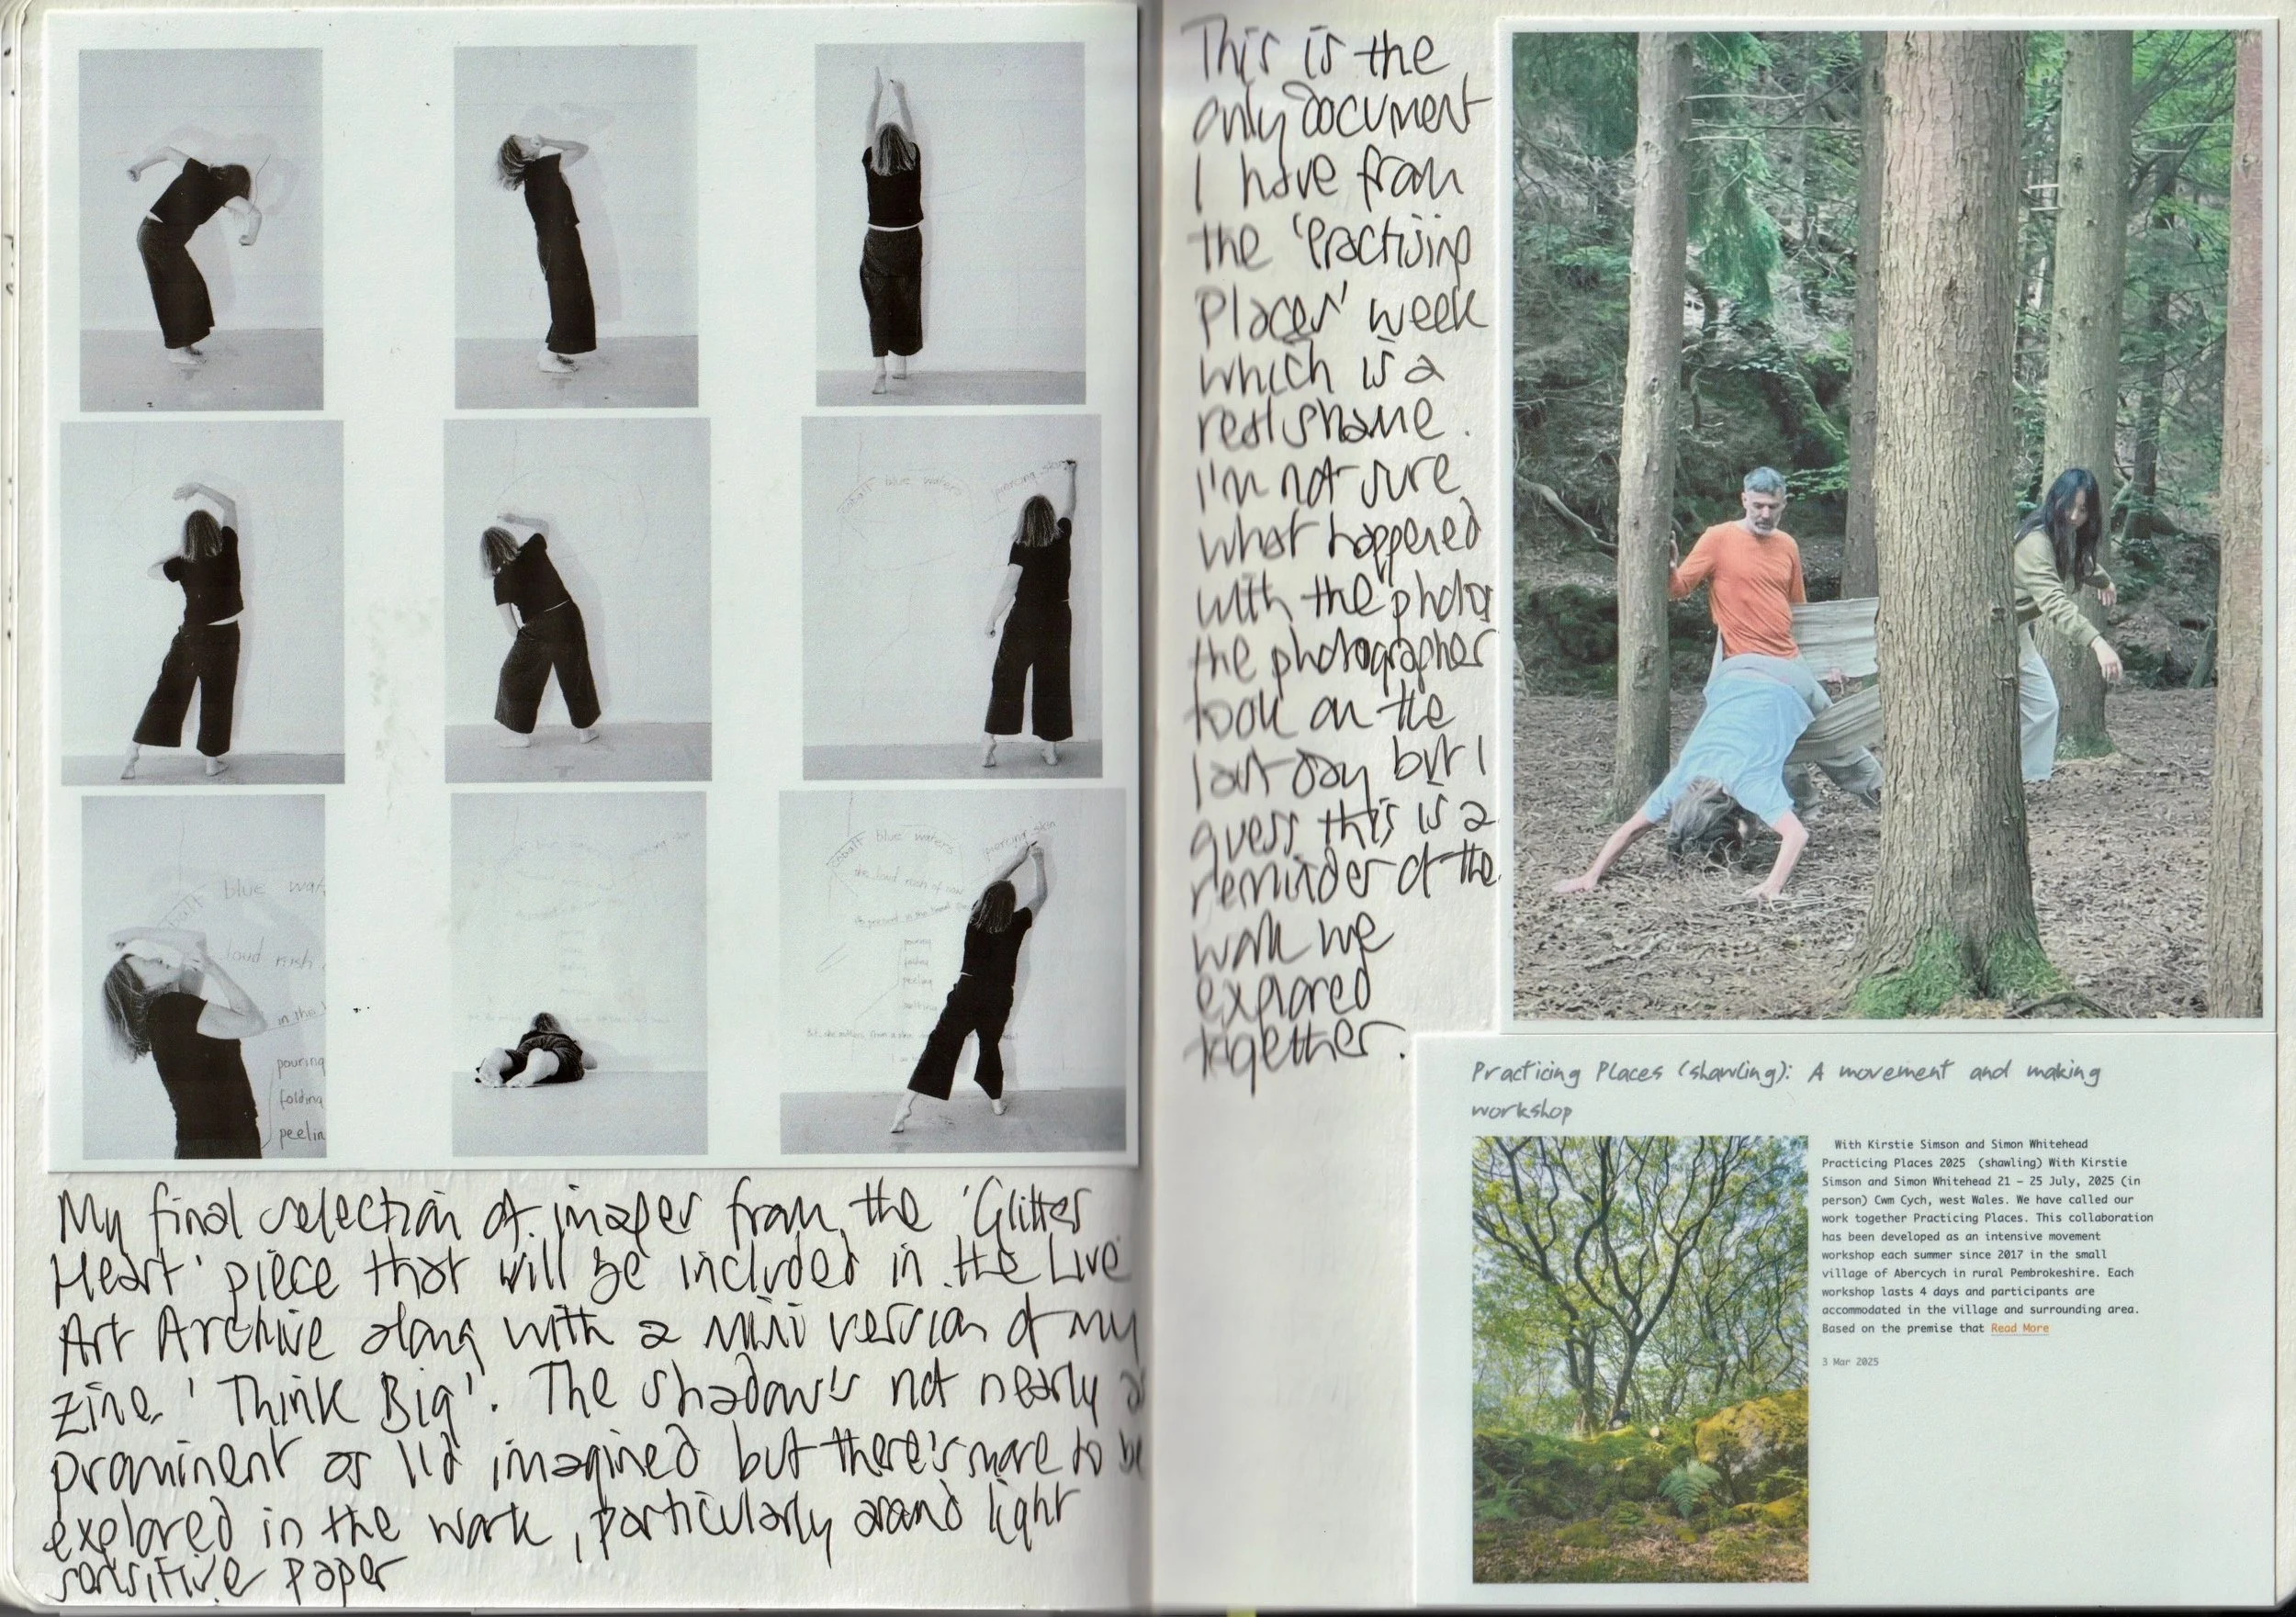 cobalt blue waters
piercing skin
blue
loud rush
in the
pouring
folding
peelin
cobalt blue waters
piercing skin
the loud rush of now
pouring
folding
peeling
My final selection of images from the 'Glitter
Heart' piece that will be included in the Live
Art Archive along with a mini version of my
zine 'Think Big'. The shadow's not nearly as
prominent as I'd imagined but there's more to be
explored in the work, particularly around light
sensitive paper
This is the
only document
I have from
the 'Practising
Places' week
which is a
real shame.
I'm not sure
what happened
with the photos
the photographer
took on the
last day but I
guess this is a
reminder of the
work we
explored
together.
Practicing Places (shawling): A movement and making
workshop
With Kirstie Simson and Simon Whitehead
Practicing Places 2025 (shawling) With Kirstie
Simson and Simon Whitehead 21 – 25 July, 2025 (in
person) Cwm Cych, west Wales. We have called our
work together Practicing Places. This collaboration
has been developed as an intensive movement
workshop each summer since 2017 in the small
village of Abercych in rural Pembrokeshire. Each
workshop lasts 4 days and participants are
accommodated in the village and surrounding area.
Based on the premise that Read More
3 Mar 2025